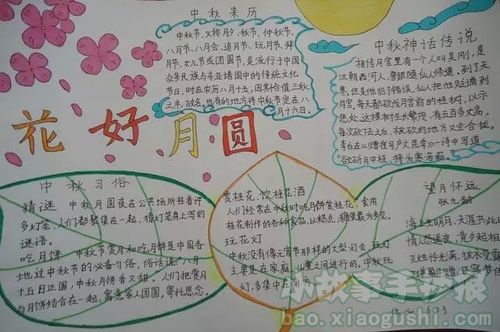 中秋来历
中秋节,又称月夕、秋节、仲秋节、
八月节、八月会、追月节、玩月节、拜月
节、女儿节或团圆节,是流行于中国
众多民族与东亚诸国中的传统文化
节日,时在农历八月十五;因其恰值三秋
之半,故名,也有的地方将中秋节定在八
月十六日。
中秋神话传说
相传月宫里有一个人叫吴刚,是
汉朝西河人,曾跟随仙人修道,到了天
界,但是他犯了错误,仙人把他贬谪到
月宫,每天都砍伐月宫前的桂树,以示
惩处。这棵树生长繁茂,有五百多丈高,
每次砍下去后,被砍的地方又会合拢,
李白在《赠崔司户文昆季》一诗中写道
“欲斫月中桂,持为寒者薪。
花好月圆
中秋习俗
猜谜 中秋月圆夜在公共场所挂着许
多灯笼,人们都聚集在一起,猜灯笼身上写的
谜语。
吃月饼
中秋节赏月和吃月饼是中国各
地过中秋节的必备习俗,俗话说:八月
十五月正圆,中秋月饼香又甜,人们把赏月
与月饼结合在一起,寓意家人团圆,寄托思念。
赏桂花、饮桂花酒
人们经常在中秋时吃月饼赏桂花,食用
桂花制作的各种食品,以糕点、糖果最为多见。
玩花灯
中秋没有像元宵节那样的大型灯会,玩灯
主要是在家庭、儿童之间进行的。中秋玩花
灯,多集中在南方
望月怀远
张九龄
海上生明月,天涯共此时
情人怨遥夜,竟夕起相思
灭烛怜光满,披衣觉露
小故事手抄报
bao.xiaogushi.com